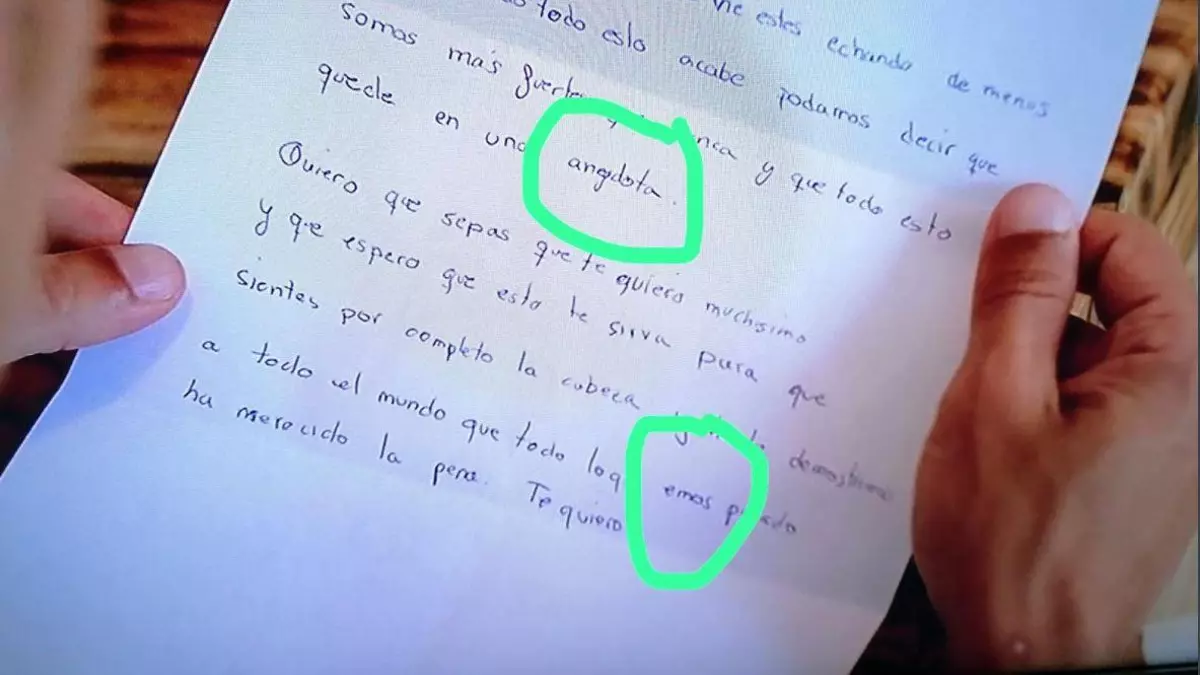 me estes echando de menos
todo esto acabe podamos decir que
somos más fuertes y que todo esto
quede en una angdota.
Quiero que sepas que te quiero muchisimo
y que espero que esto te sirva para que
sientes por completo la cabeza
a todo el mundo que todo loq emos pasado
ha merecido la pena. Te quiero